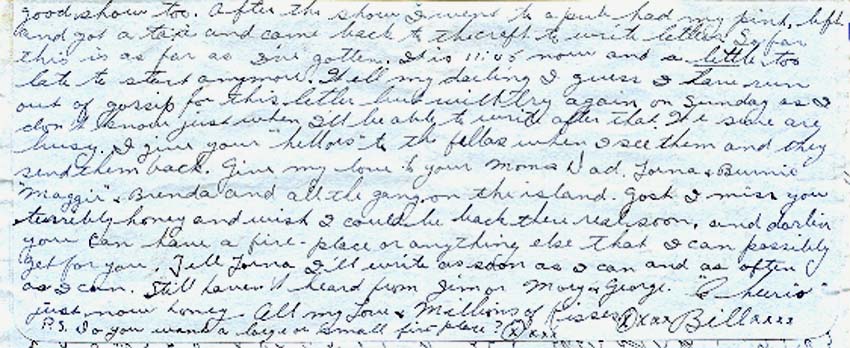 good show too. After the show I went to a pub had my pint, left
and got a taxi and came back to the craft to write letters So far
this is as far as I've gotten. It is 11:45 now and a little too
late to start anymore. Well my darling I guess I have run
out of gossip for this letter but will try again on Sunday as I
don't know just when I'll be able to write after that. We sure are
busy. I give your "hellos" to the fellas when I see them and they
send them back. Give my love to your Mom & Dad. Lorna & Bunnie
"Maggie" & Brenda and all the gang on the island. Gosh I miss you
terribly honey and wish I could be back there real soon, and darlin
you can have a fire-place or anything else that I can possibly
get for you. Tell Lorna I'll write as soon as I can and as often
as I can. Still haven't heard from Jim or Mory & George. "Cheerio"
just now honey. All my Love & Millions of Kisses xxx Bill xxxx
P.S. Do you want a large or small fire place? xxx